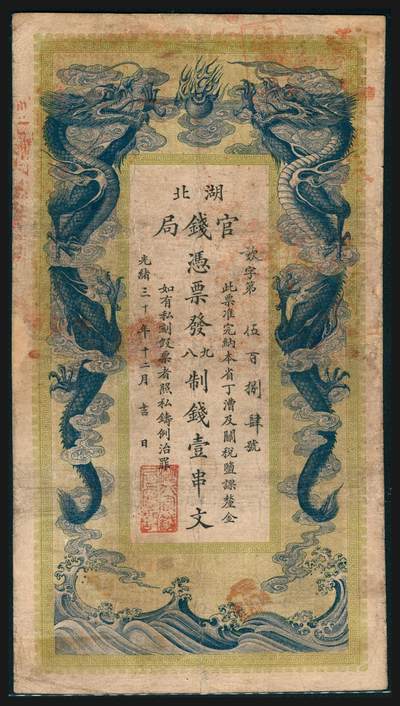 湖北
官錢局
字第伍百捌肆號
此票准完納本省丁漕及關税鹽課釐金
憑票發九八制錢壹串文
如有私刻假票者照私鑄例治罪
光緒三十年十二月吉日